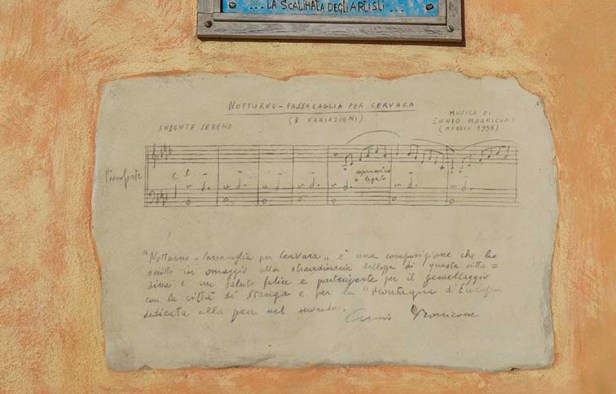 ... LA SCALINATA DEGLI ARTISTI ...
NOTTURNO-PASSACAGLIA PER CERVARA
(8 VARIAZIONI)
MUSICA DI
ENNIO MORRICONE
ANDANTE SERENO
Pianoforte
espressivo
legato
"Notturno-Passacaglia per Cervara" è una composizione che ho
scritto in omaggio alla straordinaria bellezza di questa citta=
dina e un saluto felice e partecipante per il gemellaggio
con la città di e per la "Montagna d'Europa"
dedicata alla pace nel mondo.
Ennio Morricone